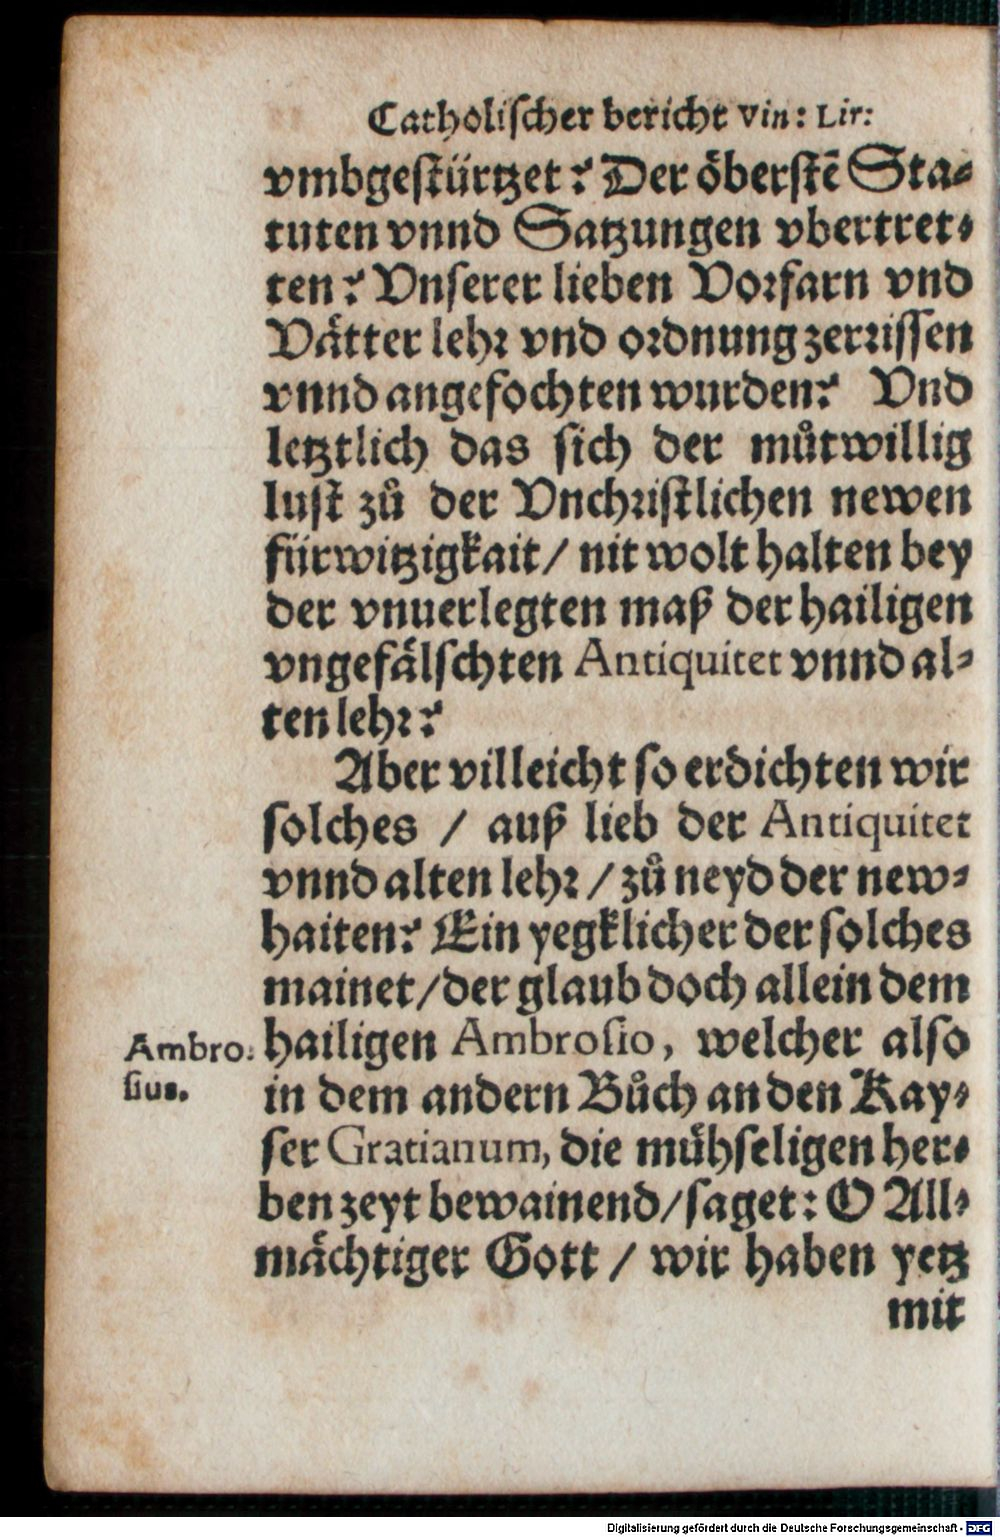 Catholischer bericht Vin: Lir:
vmbgestürtzet? Der oͤberstē Sta-
tuten vnnd Satzungen vbertret-
ten? Vnserer lieben Vorfarn vnd
Vaͤtter lehr vnd ordnung zerrissen
vnnd angefochten wurden? Vnd
letztlich das sich der muͦtwillig
lust zuͦ der Vnchristlichen newen
fürwitzigkait / nit wolt halten bey
der vnuerlegten maß der hailigen
vngefaͤlschten Antiquitet vnnd al-
ten lehr?
Aber villeicht so erdichten wir
solches / auß lieb der Antiquitet
vnnd alten lehr / zuͦ neyd der new-
haiten? Ein yegklicher der solches
mainet / der glaub doch allein dem
Ambro-
sius.
hailigen Ambrosio, welcher also
in dem andern Buͦch an den Kay-
ser Gratianum, die muͤhseligen her-
ben zeyt bewainend / saget: O All-
maͤchtiger Gott / wir haben yetz
mit
Digitalisierung gefördert durch die Deutsche Forschungsgemeinschaft - DFG